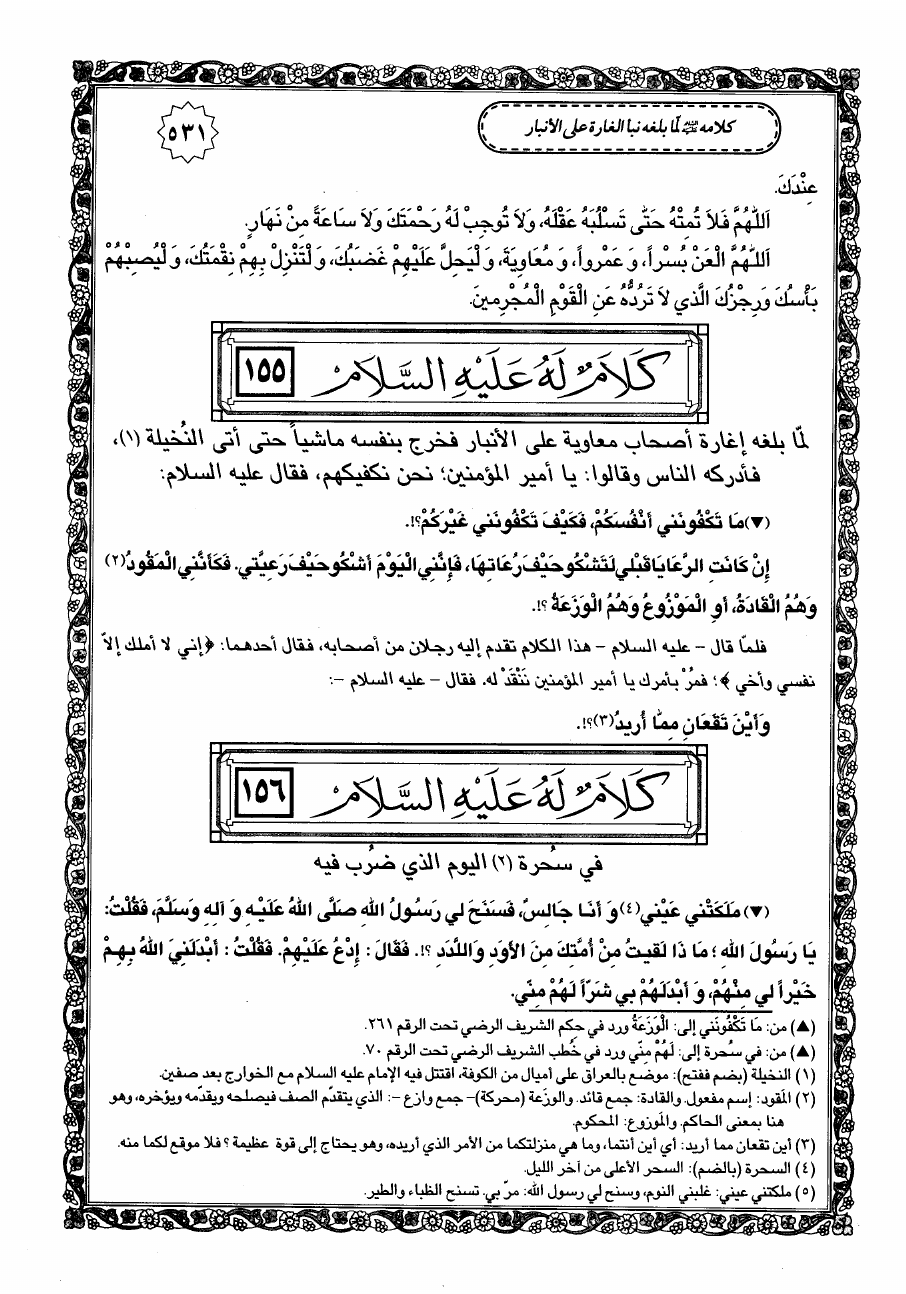 كلامه عليه السلام لمّا بلغه نبأ الغارة على الأنبار
٥٣١
عِنْدَكَ.
اَللّٰهُمَّ فَلاَ تُمِتْهُ حَتّٰى تَسْلُبَهُ عَقْلَهُ، وَلاَ تُوجِبْ لَهُ رَحْمَتَكَ وَلاَ سَاعَةً مِنْ نَهَارٍ.
اَللّٰهُمَّ الْعَنْ بُسْراً، وَ عَمْرواً، وَ مُعَاوِيَةَ، وَ لْيَحِلَّ عَلَيْهِمْ غَضَبُكَ، وَ لْتَنْزِلْ بِهِمْ نِقْمَتُكَ، وَ لْيُصِبْهُمْ
بَأْسُكَ وَرِجْزُكَ الَّذي لاَ تَرُدُّهُ عَنِ الْقَوْمِ الْمُجْرِمينَ.
كَلَامٌ لَهُ عَلَيْهِ السَّلَامُ ١٥٥
لمّا بلغه إغارة أصحاب معاوية على الأنبار فخرج بنفسه ماشياً حتى أتى النُخيلة (١)،
فأدركه الناس وقالوا: يا أمير المؤمنين؛ نحن نكفيكهم، فقال عليه السلام:
(▼) مَا تَكْفُونَني أَنْفُسَكُمْ، فَكَيْفَ تَكْفُونَني غَيْرَكُمْ؟!.
إِنْ كَانَتِ الرَّعَايَا قَبْلي لَتَشْكُو حَيْفَ رُعَاتِهَا، فَإِنَّنِي الْيَوْمَ أَشْكُو حَيْفَ رَعِيَّتي. فَكَأَنَّنِي الْمَقُودُ (٢)
وَهُمُ الْقَادَةُ، أَوِ الْمَوْزُوعُ وَهُمُ الْوَزَعَةُ؟!.
فلمّا قال - عليه السلام - هذا الكلام تقدم إليه رجلان من أصحابه، فقال أحدهما: ﴿إني لا أملك إلاّ
نفسي وأخي﴾؛ فمُرْ بأمرك يا أمير المؤمنين نَنْقَدْ له. فقال - عليه السلام -:
وَأَيْنَ تَقَعَانِ مِمَّا أُريدُ (٣)؟!.
كَلَامٌ لَهُ عَلَيْهِ السَّلَامُ ١٥٦
في سُحرة (٢) اليوم الذي ضُرب فيه
(▼) مَلَكَتْني عَيْني (٤) وَ أَنَا جَالِسٌ، فَسَنَحَ لي رَسُولُ اللهِ صَلَّى اللهُ عَلَيْهِ وَ آلِهِ وَسَلَّمَ، فَقُلْتُ:
يَا رَسُولَ اللهِ؛ مَا ذَا لَقيتُ مِنْ أُمَّتِكَ مِنَ الأَوَدِ وَاللَّدَدِ؟!. فَقَالَ: إِدْعُ عَلَيْهِمْ. فَقُلْتُ: أَبْدَلَنِيَ اللهُ بِهِمْ
خَيْراً لي مِنْهُمْ، وَ أَبْدَلَهُمْ بي شَرّاً لَهُمْ مِنّي.
(▲) من: مَا تَكْفُونَني إلى: الْوَزَعَةُ ورد في حكم الشريف الرضي تحت الرقم ٢٦١.
(▲) من: في سُحرة إلى: لَهُمْ مِنّي ورد في خُطب الشريف الرضي تحت الرقم ٧٠.
(١) النخيلة (بضم ففتح): موضع بالعراق على أميال من الكوفة، اقتتل فيه الإمام عليه السلام مع الخوارج بعد صفين.
(٢) المقود: إسم مفعول. والقادة: جمع قائد. والوزعة (محركة)- جمع وازع -: الذي يتقدّم الصف فيصلحه ويقدّمه ويؤخره، وهو
هنا بمعنى الحاكم. والموزوع: المحكوم.
(٣) أين تقعان مما أريد: أي أين أنتما، وما هي منزلتكما من الأمر الذي أريده، وهو يحتاج إلى قوة عظيمة؟ فلا موقع لكما منه.
(٤) السحرة (بالضم): السحر الأعلى من آخر الليل.
(٥) ملكتني عيني: غلبني النوم، وسنح لي رسول الله: مرّ بي. تسنح الظباء والطير.